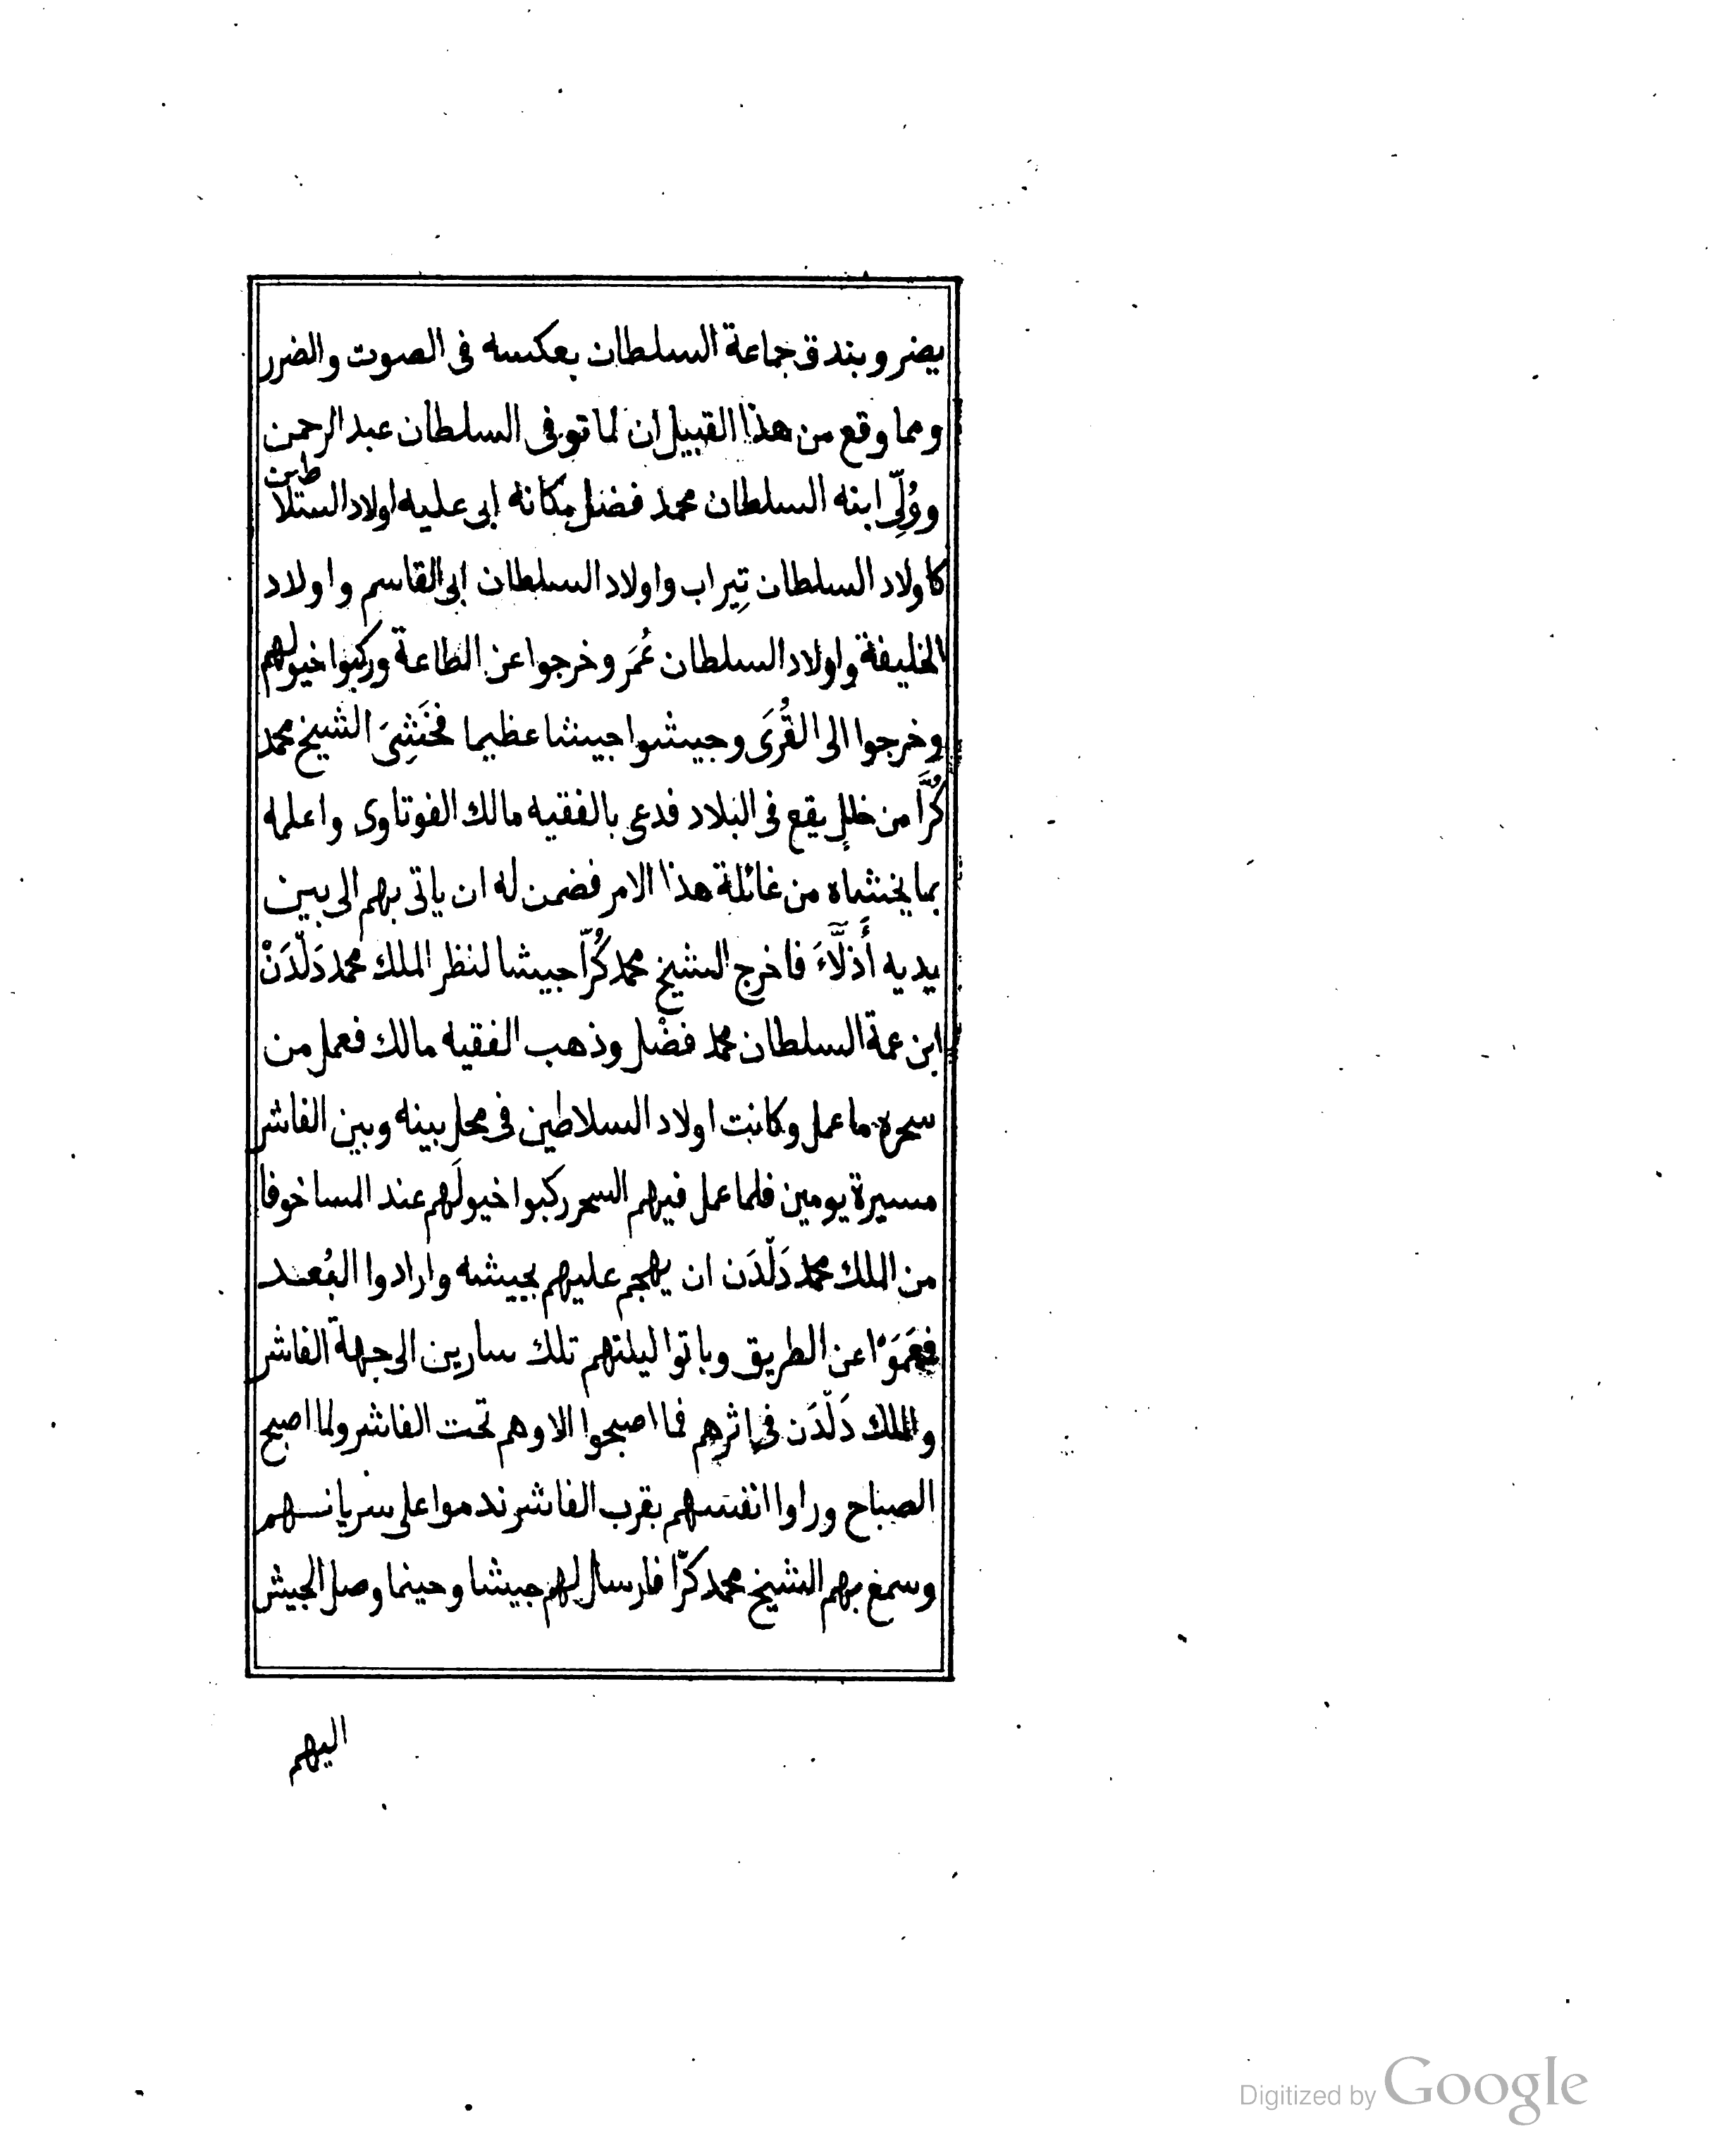 يضر وبندق جماعة السلطان بعكسه فى الصوت والضرر
ومما وقع من هذا القبيل ان لما توفى السلطان عبد الرحمن
ووُلِّى ابنه السلطان محمد فضل مكانه ابى عليه اولاد السلاطين
كاولاد السلطان تِيراب واولاد السلطان ابى القاسم واولاد
الخليفة واولاد السلطان عُمَر وخرجوا عن الطاعة وركبوا خيولهم
وخرجوا الى القُرَى وجيشوا جيشا عظيما فخَشِىَ الشيخ محمد
كُرَّا من خلل يقع فى البلاد فدعى بالفقيه مالك الفوتاوى واعلمه
بما يخشاه من غائلة هذا الامر فضمن له ان ياتى بهم الى بين
يديه أَذلَّاءَ فاخرج الشيخ محمد كُرّا جيشا لنظر الملك محمد دَلْدَنْ
ابن عمة السلطان محمد فضْل وذهب الفقيه مالك فعمل من
سحره ما عمل وكانت اولاد السلاطين فى محل بينه وبين الفاشر
مسيرة يومين فلما عمل فيهم السحر ركبوا خيولَهم عند المسا خوفا
من الملك محمد دَلْدَن ان يهجم عليهم بجيشه وارادوا البُعد
فعَمَوْا عن الطريق وباتوا ليلتهم تلك سارين الى جهة الفاشر
والملك دَلْدَن فى اثرهم فما اصبحوا الا وهم تحت الفاشر ولما اصبح
الصباح وراوا انفسهم بقرب الفاشر ندموا على سريانهم
وسمع بهم الشيخ محمد كرّا فارسل لهم جيشا وحينما وصل الجيش
اليهم
Digitized by Google